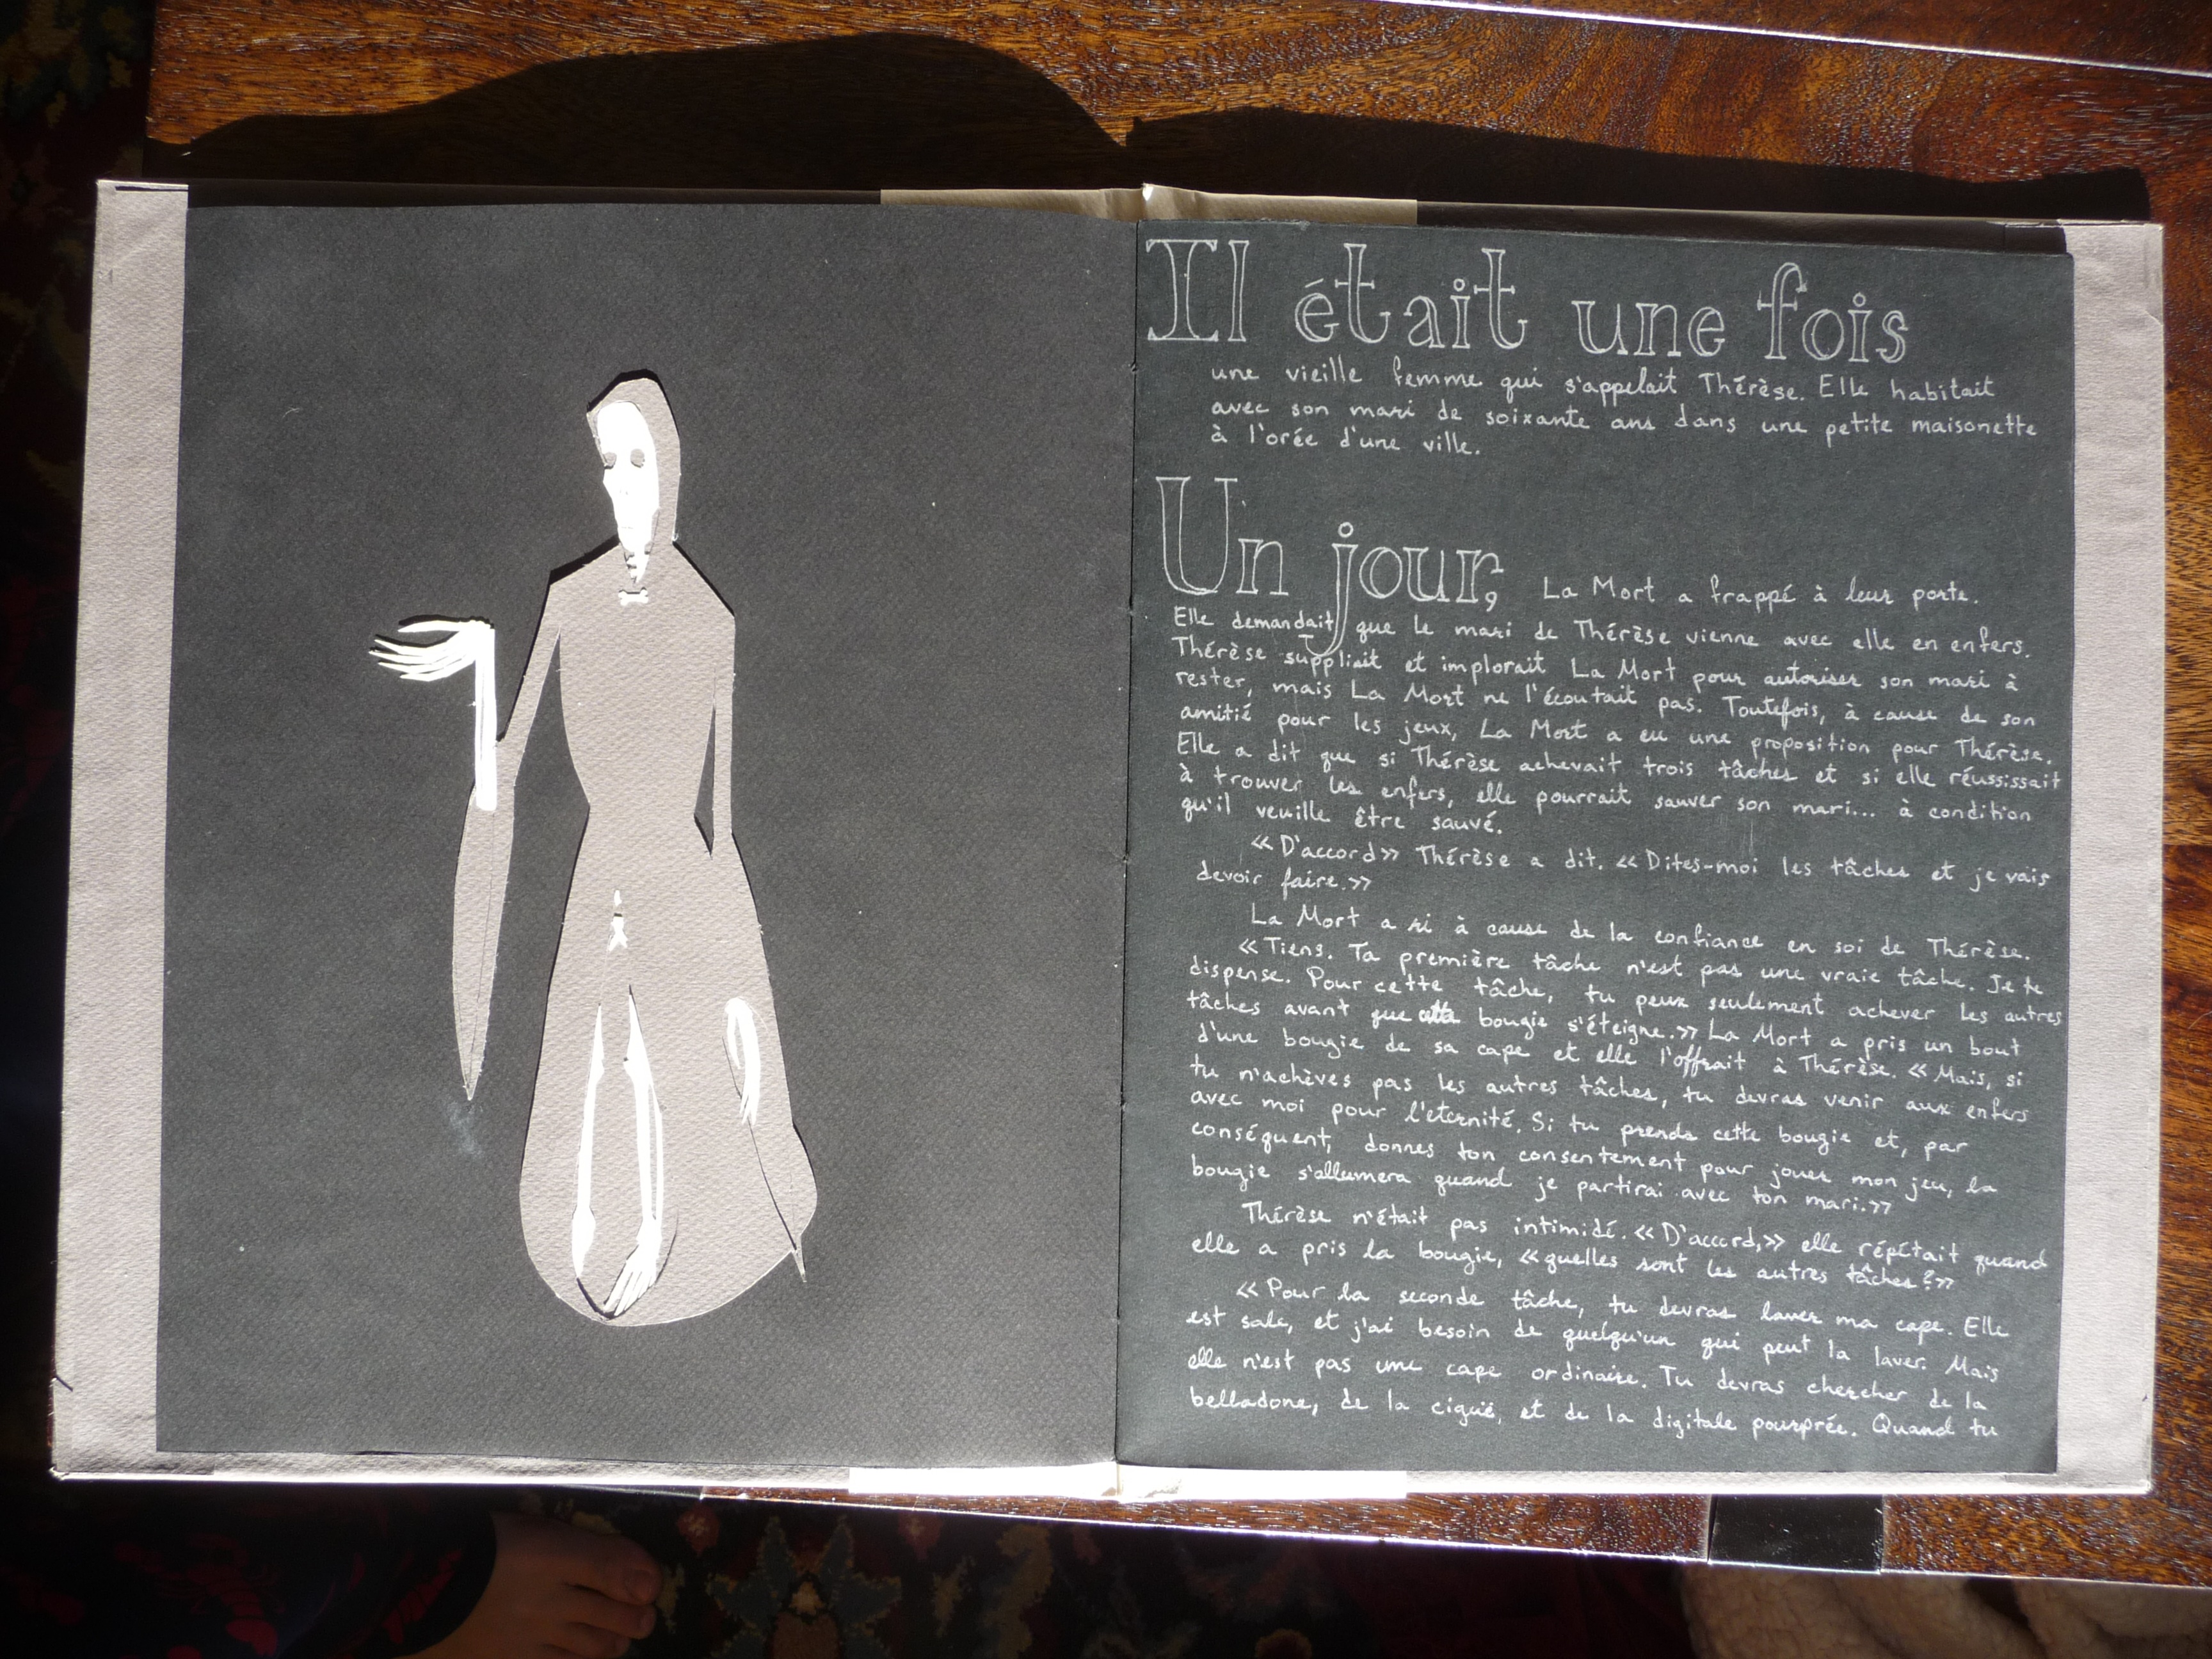 Il était une fois
une vieille femme qui s'appelait Thérèse. Elle habitait
avec son mari de soixante ans dans une petite maisonette
à l'orée d'une ville.
Un jour, La Mort a frappé à leur porte.
Elle demandait que le mari de Thérèse vienne avec elle en enfers.
Thérèse suppliait et implorait La Mort pour autoriser son mari à
rester, mais La Mort ne l'écoutait pas. Toutefois, à cause de son
amitié pour les jeux, La Mort a eu une proposition pour Thérèse.
Elle a dit que si Thérèse achevait trois tâches et si elle réussissait
à trouver les enfers, elle pourrait sauver son mari... à condition
qu'il veuille être sauvé.
« D'accord » Thérèse a dit. « Dites-moi les tâches et je vais
devoir faire. »
La Mort a ri à cause de la confiance en soi de Thérèse.
« Tiens. Ta première tâche n'est pas une vraie tâche. Je te
dispense. Pour cette tâche, tu peux seulement achever les autres
tâches avant que cette bougie s'éteigne. » La Mort a pris un bout
d'une bougie de sa cape et elle l'offrait à Thérèse. « Mais, si
tu n'achèves pas les autres tâches, tu devras venir aux enfers
avec moi pour l'eternité. Si tu prends cette bougie et, par
conséquent, donnes ton consentement pour jouer mon jeu, la
bougie s'allumera quand je partirai avec ton mari. »
Thérèse n'était pas intimidé. « D'accord, » elle répétait quand
elle a pris la bougie, « quelles sont les autres tâches ? »
« Pour la seconde tâche, tu devras laver ma cape. Elle
est sale, et j'ai besoin de quelqu'un qui peut la laver. Mais
elle n'est pas une cape ordinaire. Tu devras chercher de la
belladone, de la ciguë, et de la digitale pourprée. Quand tu